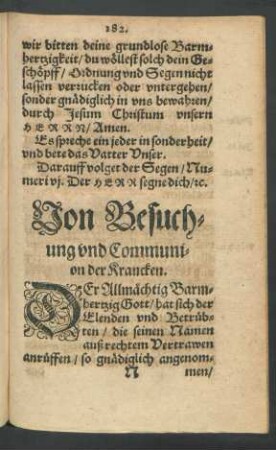 182.
wir bitten deine grundlose Barm⸗
hertzigkeit/ du wöllest solch dein Ge⸗
schöpff/ Ordnung vnd Segen nicht
lassen verrucken oder vntergehen/
sonder gnädiglich in vns bewahren/
durch Jesum Christum vnsern
HERRN/ Amen.
Es spreche ein jeder in sonderheit/
vnd bete das Vatter Vnser.
Darauff volget der Segen/ Nu⸗
meri vj. Der HERR segne dich/ ꝛc.
Von Besuch⸗
ung vnd Communi⸗
on der Krancken.
DEr Allmächtig Barm⸗
hertzig Gott/ hat sich der
Elenden vnd Betrüb⸗
ten/ die seinen Namen
auß rechtem Vertrawen
anrüffen/ so gnädiglich angenom⸗
N men/